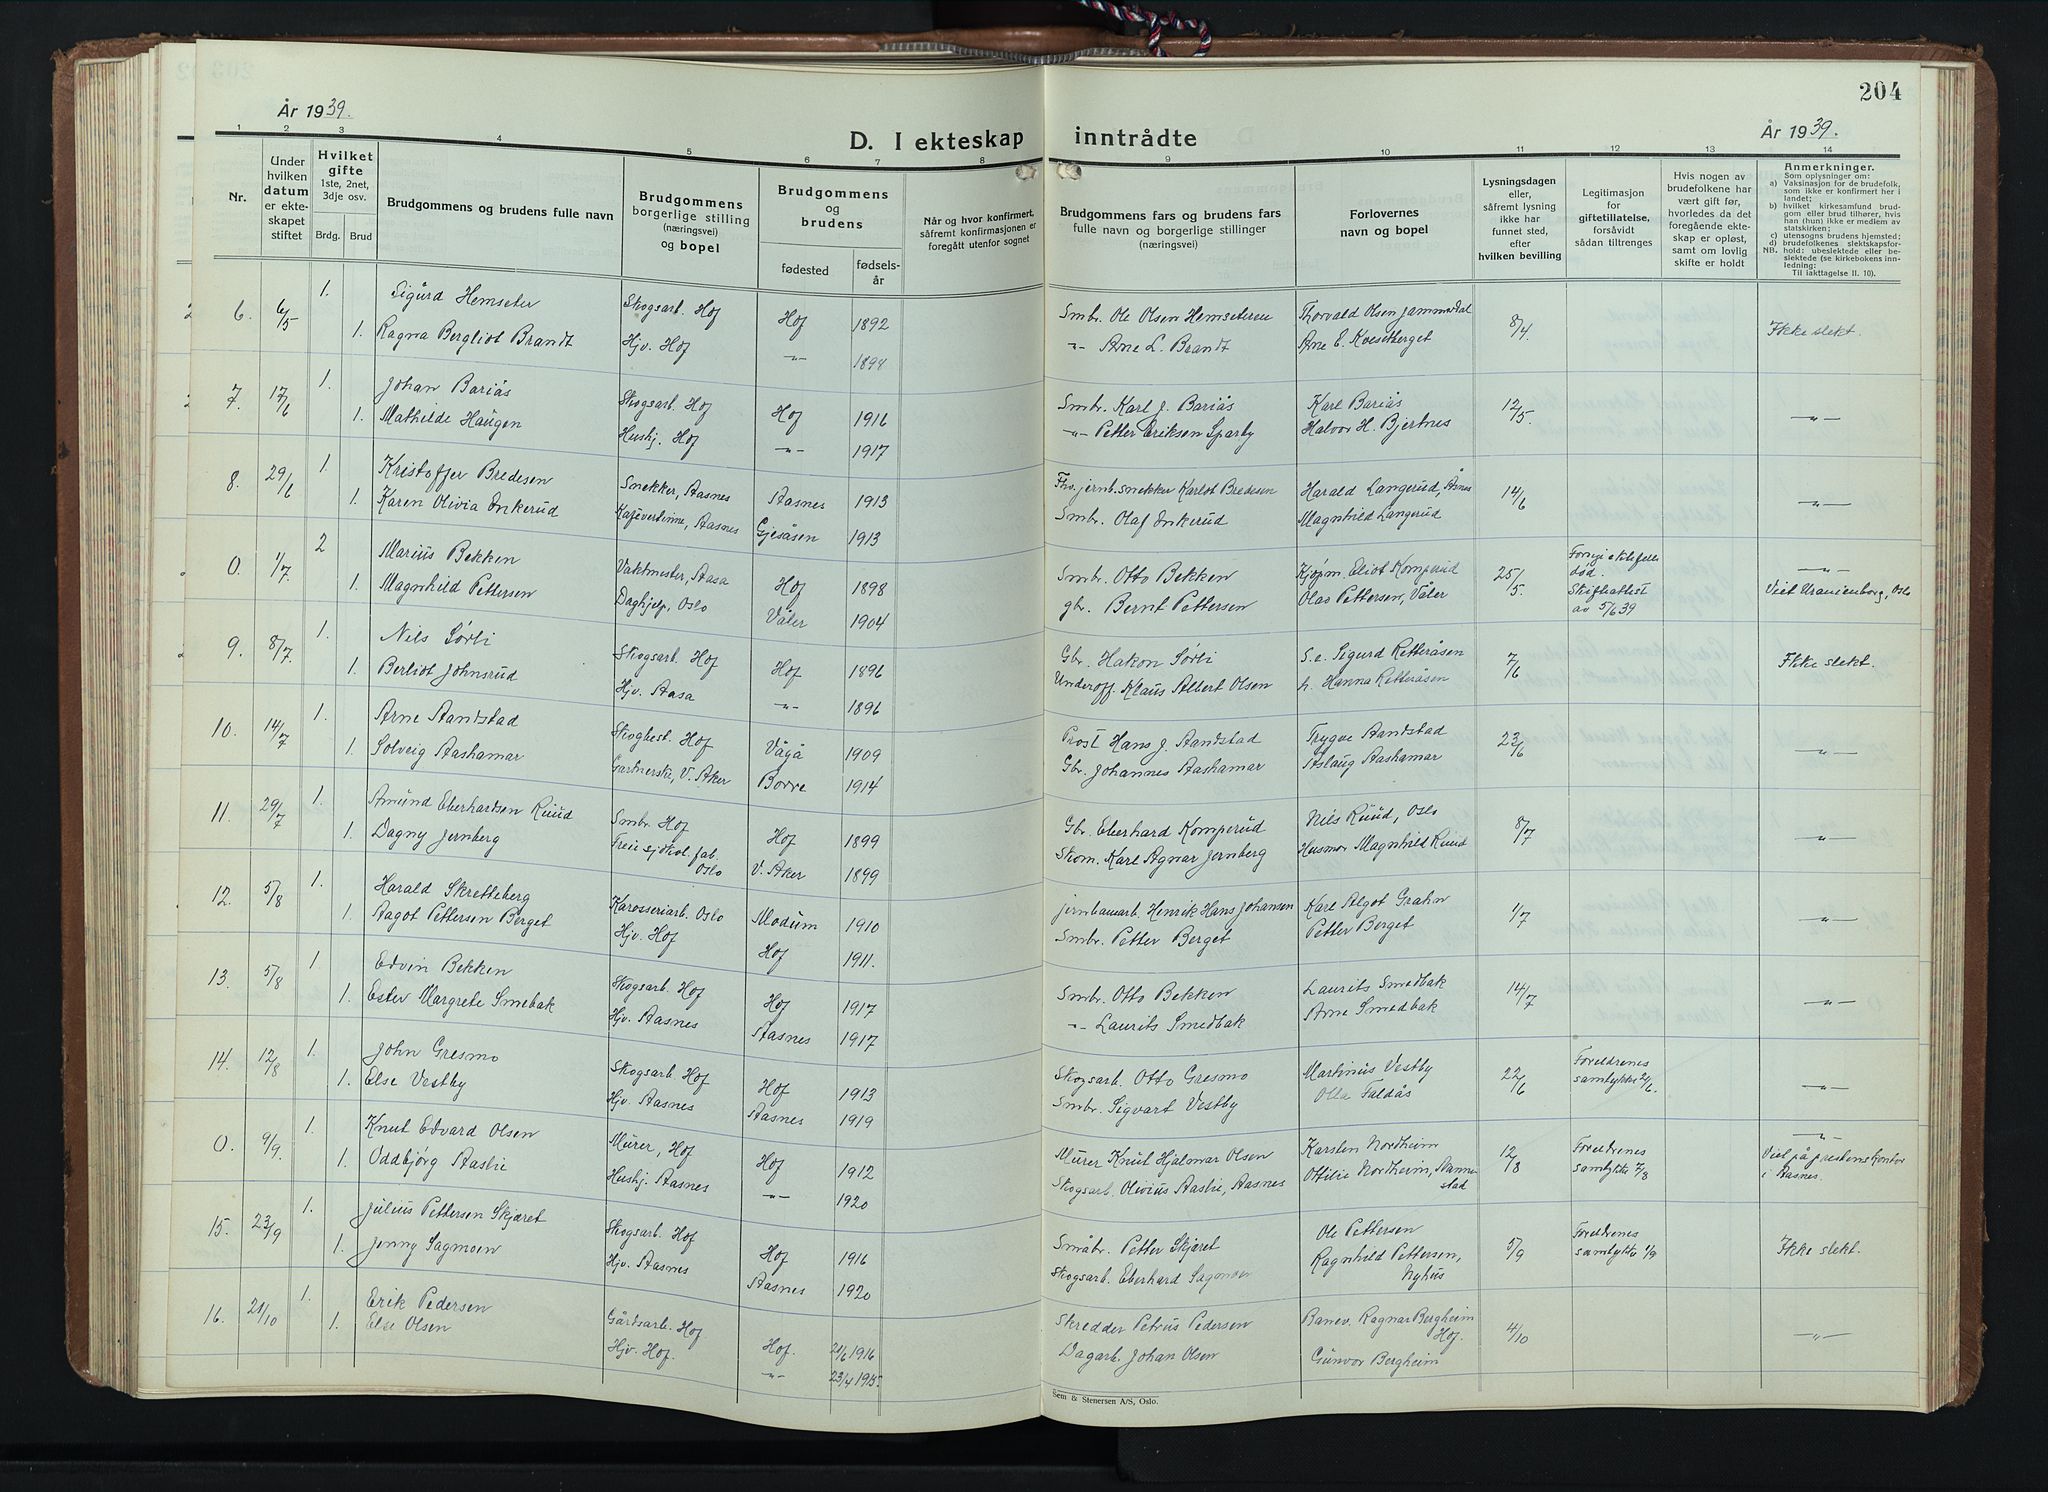 204
År 1939.
År 1939.
D. I ekteskap inntrådte
1 2 3 4 5 6 7 8 9 10 11 12 13 14
Nr.
Under hvilken datum er ekteskapet stiftet
Hvilket gifte 1ste, 2net, 3dje osv.
Brdg. Brud
Brudgommens og brudens fulle navn
Brudgommens borgerlige stilling (næringsvei) og bopel
Brudgommens og brudens
fødested
fødselsår
Når og hvor konfirmert, såfremt konfirmasjonen er foregått utenfor sognet
Brudgommens fars og brudens fars fulle navn og borgerlige stillinger (næringsvei)
Forlovernes navn og bopel
Lysningsdagen eller, såfremt lysning ikke har funnet sted, efter hvilken bevilling
Legitimasjon for giftetillatelse, forsåvidt sådan tiltrenges
Hvis nogen av brudefolkene har vært gift før, hvorledes da det foregående ekteskap er opløst, samt om lovlig skifte er holdt
Anmerkninger.
Som oplysninger om:
a) Vaksinasjon for de brudefolk, som ikke er konfirmert her i landet;
b) hvilket kirkesamfund brudgom eller brud tilhører, hvis han (hun) ikke er medlem av statskirken;
c) utensogns brudens hjemsted;
d) brudefolkenes slektskapsforhold: ubeslektede eller beslektede (se kirkebokens innledning:
NB. Til iakttagelse II. 10).
6. 6/5 1. Sigurd Hemseter Skogsarb. Hof Hof 1892 Smbr. Ole Olsen Hemseteren Thorvald Olsen Jammerdal 8/4 Ikke slekt.
1. Ragna Bergliot Brandt Hjv. Hof -"- 1898 -"- Arne L. Brandt Arne E. Kveseberget
7. 17/6 1. Johan Bariås Skogsarb. Hof Hof 1916 Smbr. Karl J. Bariås Karl Bariås 12/5. -"-
1. Mathilde Haugen Hushj. Hof -"- 1917 -"- Petter Eriksen Sparby Halvor H. Bjertnes
8. 29/6 1. Kristoffer Bredesen Snekker, Aasnes Aasnes 1913 Fhv. jernb. snekker Karlot Bredesen Harald Langerud, Åsnes 14/6 -"-
1. Karen Olivia Inkerud Kafévertinne, Aasnes Gjesåsen 1913 Smbr. Olaf Inkerud Magnhild Langerud
0. 1/7. 2 Marius Bekken Vaktmester, Aasa Hof 1898 Smbr. Otto Bekken Kjøpm. Eliot Komperud 25/5. død. Skifteattest av 5/6 39 -"-
1. Magnhild Pettersen Daghjelp, Oslo Våler 1904 gbr. Bernt Pettersen Olav Pettersen, Våler Viet Uranienborg, Oslo
9. 8/7. 1. Nils Sørli Skogsarb. Hof Hof 1896 Gbr. Hakon Sørli S.e. Sigurd Retteråsen 7/6 Ikke slekt.
1. Berliot Johnsrud Hjv. Aasa -"- 1896 Underoff. Klaus Albert Olsen h. Hanna Retteråsen
10. 14/7 1. Arne Aandstad Skogbest. Hof Vågå 1909 Prost Hans J. Aandstad Trygve Aandstad 23/6 -"-
1. Solveig Aashamar Gartnerske, V. Aker Borre 1914 Gbr. Johannes Aashamar Aslaug Aashamar
11. 29/7 1. Amund Eberhardsen Ruud Smbr. Hof Hof 1899 Gbr. Eberhard Komperud Nils Ruud, Oslo 8/7 -"-
1. Dagny Jernberg Freia sjokol. fab. Oslo V. Aker 1899 Skom. Karl Agnar Jernberg Husmor Magnhild Ruud
12. 5/8 1. Harald Skretteberg Karosseriarb. Oslo Modum 1910 Jernbanearb. Henrik Hans Johansen Karl Algot Grahn 1/7 -"-
1. Aagot Pettersen Berget Hjv. Hof Hof 1911. Smbr. Petter Berget Petter Berget
13. 5/8 1 Edvin Bekken Skogsarb. Hof Hof 1917 Smbr. Otto Bekken Laurits Smedbak 14/7 -"-
1. Ester Margrete Smebak Hjv. Aasnes Aasnes 1917 -"- Laurits Smedbak Arne Smedbak
14. 12/8 1. John Gresmo Skogsarb. Hof Hof 1913 Skogsarb. Otto Gresmo Martinius Vestby 22/6 Foreldrenes samtykke 2/6. -"-
1. Else Vestby Hjv. Aasnes Aasnes 1919 Smbr. Sigvart Vestby Olla Faldås
0. 9/9. 1. Knut Edvard Olsen Murer, Hof Hof 1912 Murer Knut Hjalmar Olsen Karsten Nordheim 12/8 Foreldrenes samtykke 7/8 -"- Viet på prestens kontor i Aasnes.
1. Oddbjørg Aaslie Hushj. Aasnes -"- 1920 Skogsarb. Olivius Aaslie, Aasnes Ottilie Nordheim,
15. 23/9 1. Julius Pettersen Skjæret Skogsarb. Hof Hof 1916 Småbr. Petter Skjæret Ole Pettersen 5/9 Foreldrenes samtykke 1/9 Ikke slekt.
1. Jenny Sagmoen Hjv. Aasnes Aasnes 1920 Skogsarb. Eberhard Sagmoen Ragnhild Pettersen, Nyhus
16. 21/10 1. Erik Pedersen Gårdsarb. Hof Hof. 21/6 1916 Skredder Petrus Pedersen Banev. Ragnar Bergheim Hof. 4/10 -"-
1. Else Olsen Hjv. Hof. -"- 23/4 1915. Dagarb. Johan Olsen Gunvor Bergheim
Sem & Stenersen A/S, Oslo.